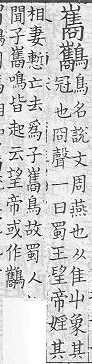 巂
鳥名說文周燕也从隹山象其
冠也冏聲一曰蜀王望帝婬其
相妻慙亡去爲子巂鳥故蜀人
聞子巂鳴皆起云望帝或作